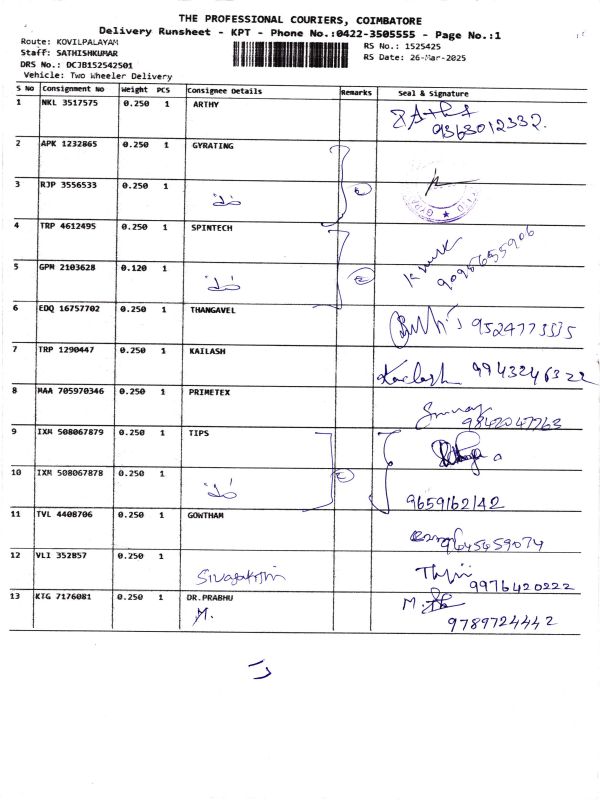 THE PROFESSIONAL COURIERS, COIMBATORE
Delivery Runsheet - KPT - Phone No.:0422-3505555 - Page No.:1
Route: KOVILPALAYAM
Staff: SATHISHKUMAR
DRS No.: DCJB152542501
Vehicle: Two Wheeler Delivery
RS No.: 1525425
RS Date: 26-Mar-2025
S No Consignment No Weight PCS Consignee Details Remarks Seal & Signature
1 NKL 3517575 0.250 1 ARTHY
9363012332.
2 APK 1232865 0.250 1 GYRATING
3 RJP 3556533 0.250 1
4 TRP 4612495 0.250 1 SPINTECH
9095655906
5 GPM 2103628 0.120 1
6 EDQ 16757702 0.250 1 THANGAVEL
7 TRP 1290447 0.250 1 KAILASH
Kailash 9943246322
8 MAA 705970346 0.250 1 PRIMETEX
9842047763
9 IXM 508067879 0.250 1 TIPS
10 IXM 508067878 0.250 1
9659162142
11 TVL 4408706 0.250 1 GOWTHAM
9645659074
12 VLI 352857 0.250 1
9976420222
13 KTG 7176081 0.250 1 DR.PRABHU
M.
M.
9789724442